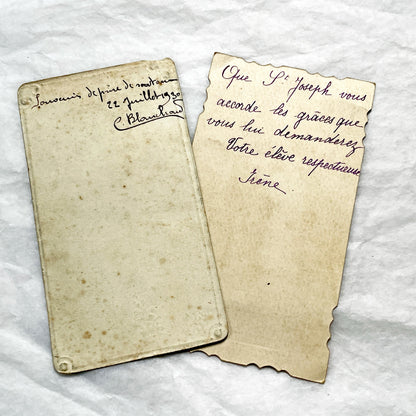 Souvenir de
22 Juillet 1930
C Blanchard
Que St Joseph vous
accorde les grâces que
vous lui demanderez
Votre élève respectueuse
Irène.